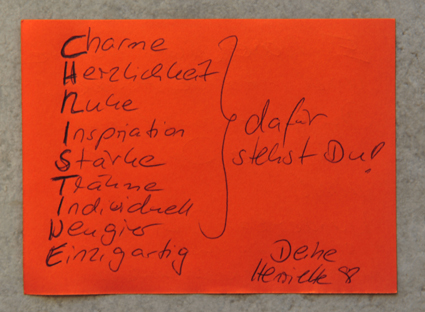 Charme
Herzlichkeit
Ruhe
Inspriation
Stärke
Träume
Individuell
Neugier
Einzigartig
dafür
stehst Du!
Deine